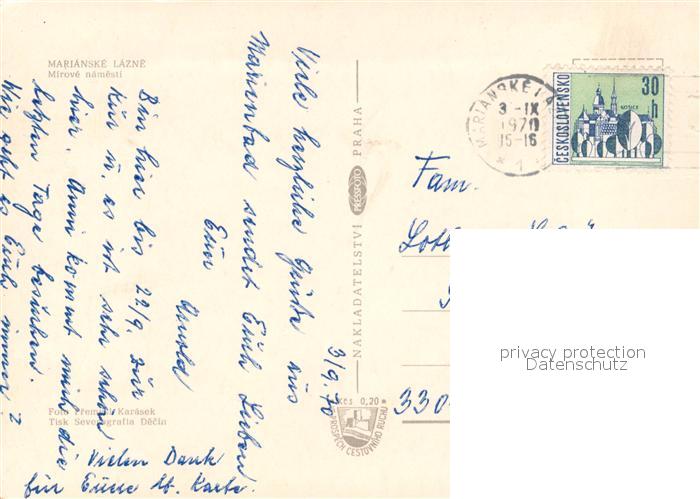 MARIÁNSKÉ LÁZNĚ
Mírové náměstí
Viele herzliche Grüße aus
Marienbad sendet Euch Lieben
Euer
Arnold
Bin hier bis 22/9. zur
Kur u. es ist sehr schön
hier. Anni kommt mich die
letzten Tage besuchen.
Wie geht es Euch immer?
Vielen Dank
für Eure lb. Karte.
3/9.70
Foto Přemysl Karásek
Tisk Severografia Děčín
NAKLADATELSTVÍ PRESSFOTO PRAHA
Kčs 0,20*
VE PROSPĚCH CESTOVNÍHO RUCHU
MARIÁNSKÉ LÁ
3 -IX
1970
15-16
* 1
ČESKOSLOVENSKO
30
h
KOŠICE
Fam.
330
privacy protection
Datenschutz